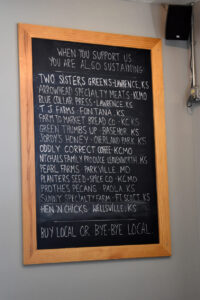 WHEN YOU SUPPORT US
YOU ARE ALSO SUSTAINING:
TWO SISTERS GREENS - LAWRENCE, KS
ARROWHEAD SPECIALTY MEATS - KCMO
BLUE COLLAR PRESS - LAWRENCE, KS
TJ FARMS - FONTANA, KS
FARM TO MARKET BREAD CO - KC, KS
GREEN THUMBS UP BASEHOR, KS
JORDY'S HONEY - OVERLAND PARK, KS
ODDLY CORRECT COFFEE - KCMO
NICHOLS FAMILY PRODUCE LEAVENWORTH, KS
PEARL FARMS PARKVILLE, MO
PLANTERS SEED + SPICE CO - KCMO
PROTHE'S PECANS - PAOLA, KS
FAMILY SPECIALTY FARM - FT. SCOTT, KS
HEN 'N CHICKS WELLSVILLE, KS
BUY LOCAL OR BYE-BYE LOCAL